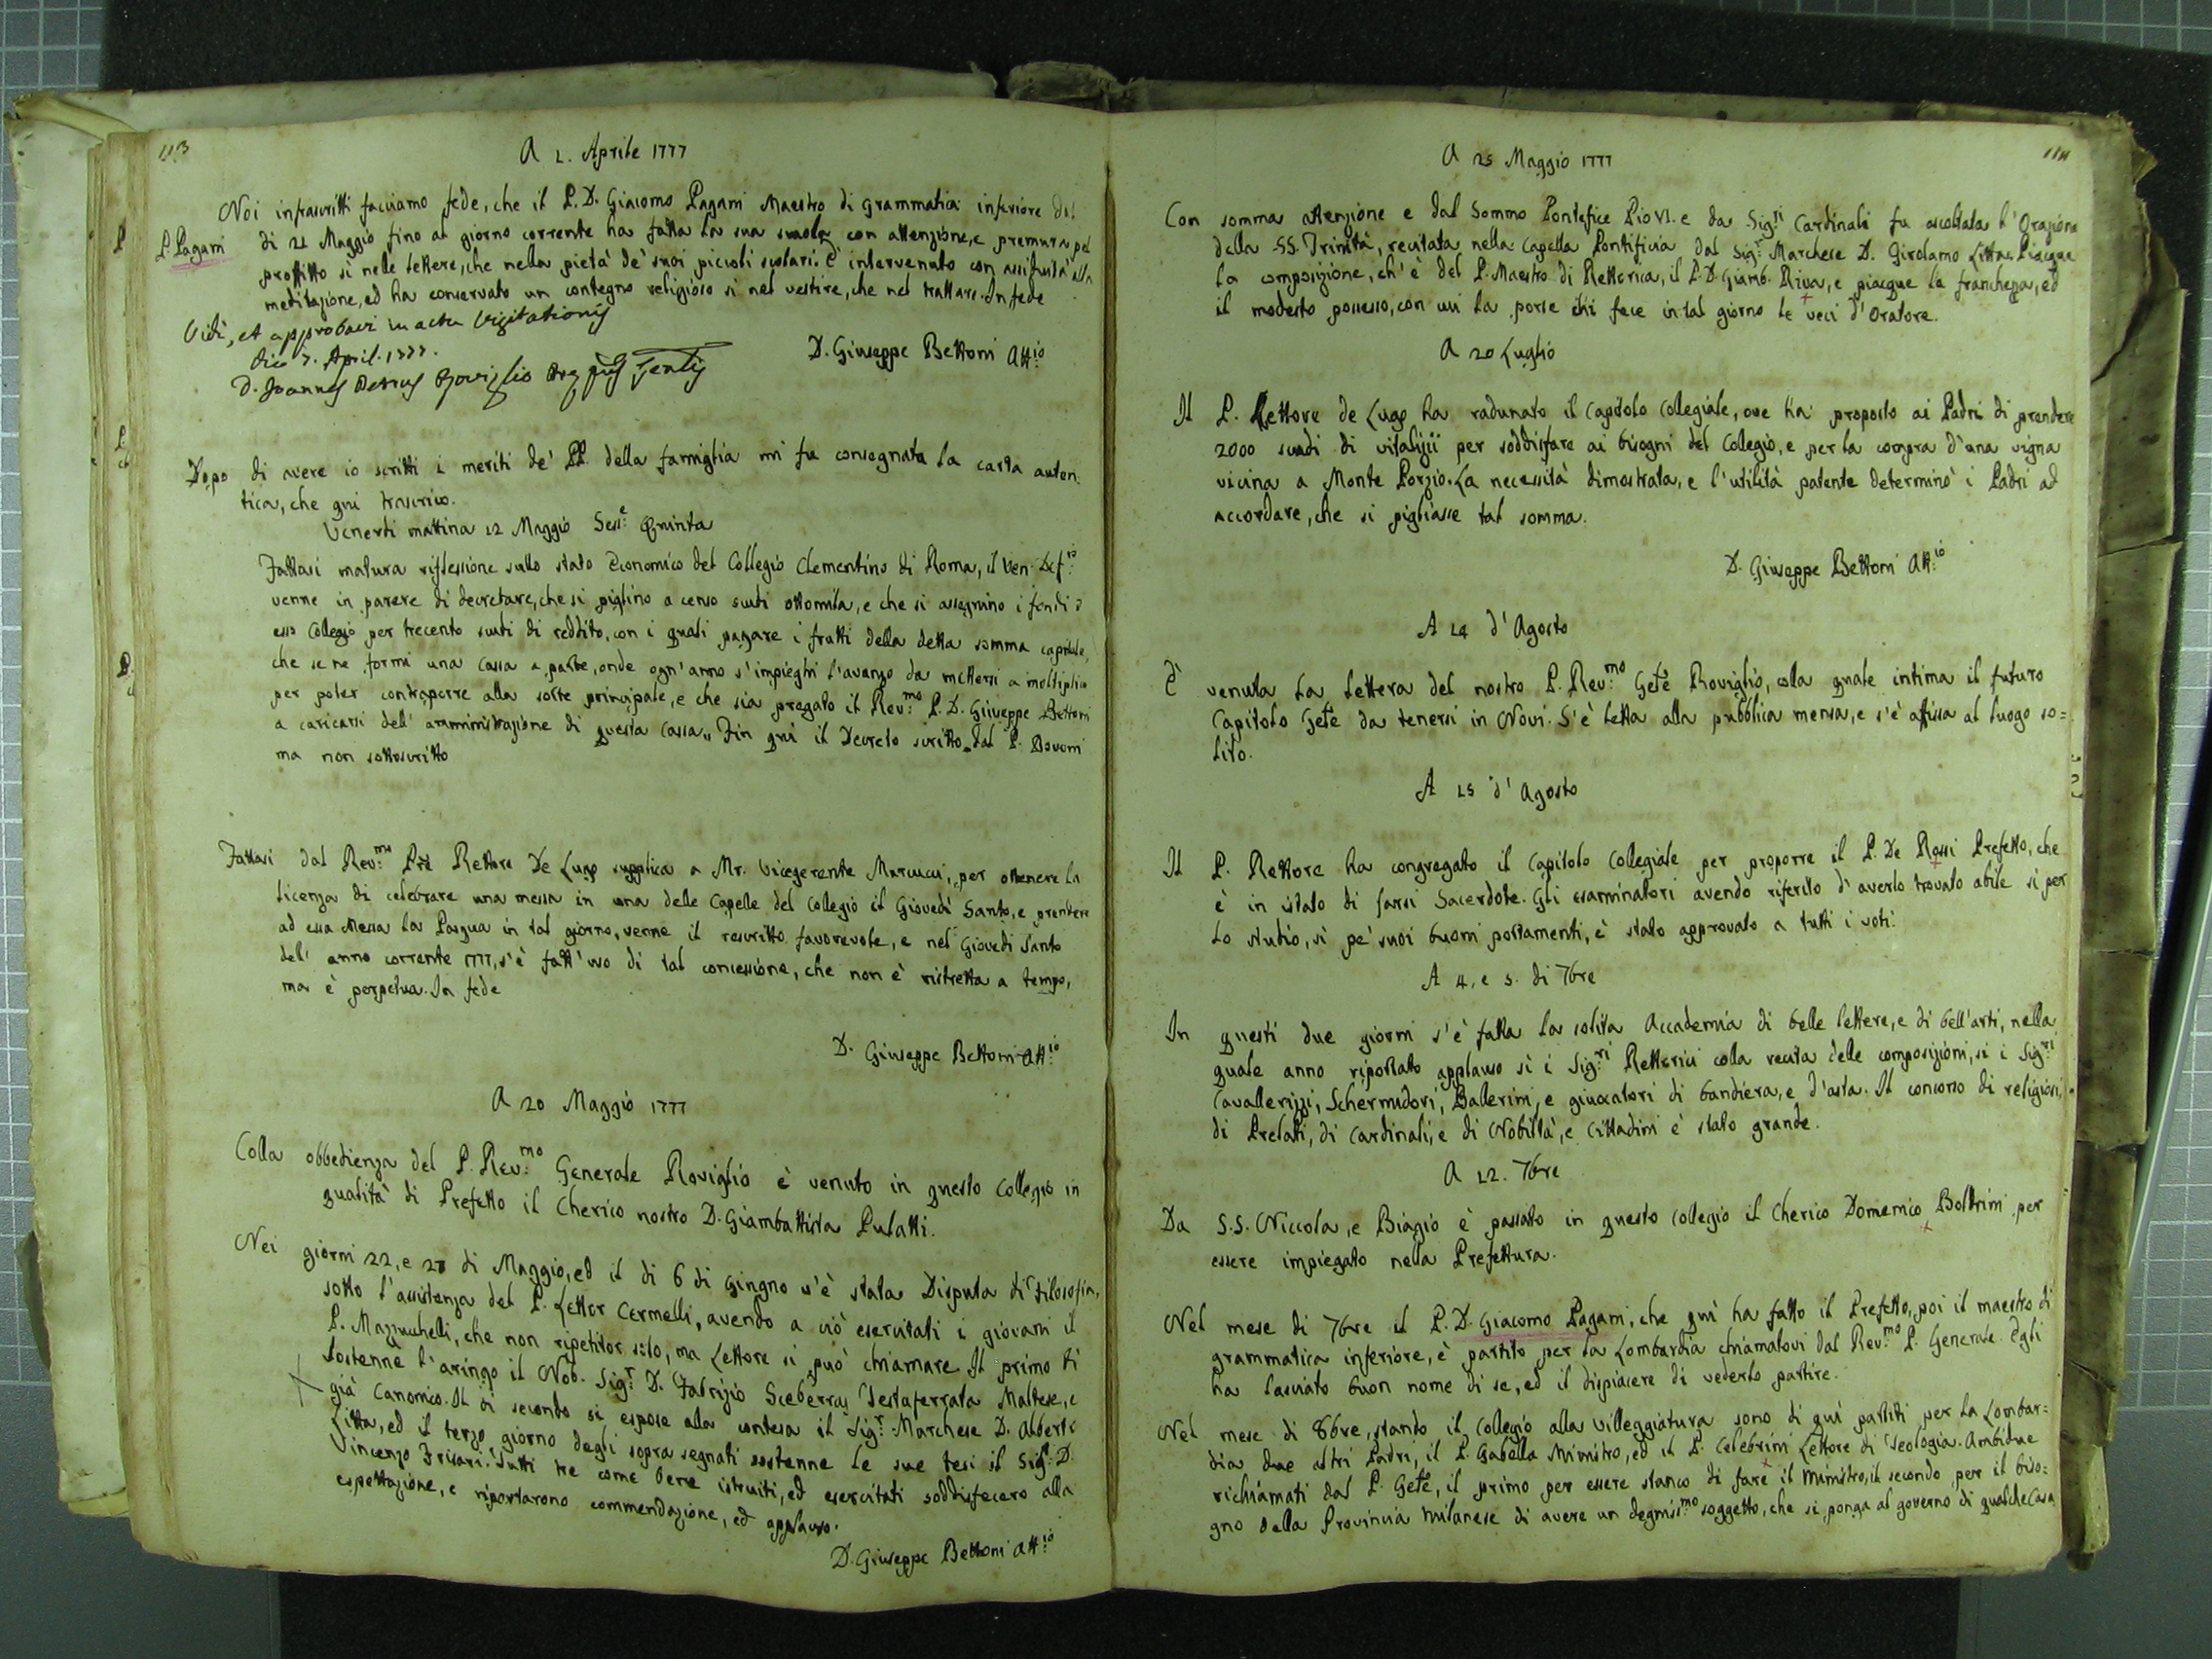 113
A 1. Aprile 1777
Noi infrascritti facciamo fede, che il P. D. Giacomo Pagani Maestro di grammatica inferiore dal
P. Pagani
di 21 Maggio fino al giorno corrente ha fatta la sua scuola con attenzione, e premura pel
proffitto sì nelle lettere, che nella pietà de' suoi piccioli scolari. È intervenuto con assiduità alla
meditazione, ed ha conservato un contegno religioso sì nel vestire, che nel trattare. In fede
Vidi, et approbavi in actu Visitationis
die 7. April. 1777.
D. Giuseppe Bettoni Att:io
D. Joannes Petrus Roviglio Præpus Genlis
Dopo di avere io scritti i meriti de' PP. della famiglia mi fu consegnata la carta auten:
tica, che qui trascrivo.
Venerdì mattina 12 Maggio Sess:e Quinta
Fattasi matura riflessione sullo stato Economico del Collegio Clementino di Roma, il Ven. Def:io
venne in parere di decretare, che si piglino a censo scudi ottomila, e che si assegnino i fondi d
esso Collegio per trecento scudi di reddito, con i quali pagare i frutti della detta somma capitale,
che se ne formi una Cassa a parte, onde ogn'anno s'impieghi l'avanzo da mettersi a moltiplico
per poter contraporre alla sorte principale, e che sia pregato il Rev:mo P. D. Giuseppe Bettoni
a caricarsi dell' amministrazione di questa Cassa,, Fin quì il Decreto scritto dal P. Bovoni
ma non sottoscritto
Fattasi dal Rev:mo Pré Rettore De Lugo supplica a Mr. Vicegerente Marcucci, per ottenere la
licenza di celebrare una messa in una delle Capelle del Collegio il Giovedì Santo, e prendere
ad essa Messa la Pasqua in tal giorno, venne il rescritto favorevole, e nel Giovedì Santo
dell' anno corrente 1777, s'è fatt' uso di tal concessione, che non è ristretta a tempo,
ma è perpetua. In fede
D. Giuseppe Bettoni Att:io
A 20 Maggio 1777
Colla obbedienza del P. Rev:mo Generale Roviglio è venuto in questo Collegio in
qualità di Prefetto il Cherico nostro D. Giambattista Pulatti.
Nei giorni 22, e 28 di Maggio, ed il di 6 di Giugno s'è stata Disputa di Filosofia,
sotto l'assistenza del P. Lettor Cermelli, avendo a ciò esercitati i giovani il
P. Mazzuchelli, che non ripetitor solo, ma Lettore si può chiamare. Il primo dì
sostenne l'aringo il Nob. Sig:r D. Fabrizio Sceberras Testaferrata Maltese, e
già Canonico. Il dì secondo si espose alla contesa il Sig:r Marchese D. Alberto
Litta, ed il terzo giorno degli sopra segnati sostenne le sue tesi il Sig:r D.
Vincenzo Frisari. Tutti tre come bene istruiti, ed esercitati soddisfecero alla
espettazione, e riportarono commendazione, ed applauso.
D. Giuseppe Bettoni Att:io
114
A 25 Maggio 1777
Con somma attenzione e dal Sommo Pontefice Pio VI. e da Sig:ri Cardinali fu ascoltata l'Orazione
della SS. Trinità, recitata nella Capella Pontificia dal Sig:r Marchese D. Girolamo Litta. Piacque
la composizione, ch' è del P. Maestro di Rettorica, il P. D. Giamb. Riva, e piacque la franchezza, ed
il modesto possesso, con cui la porse chi fece in tal giorno le veci d'Oratore.
A 20 Luglio
Il P. Rettore de Lugo ha radunato il Capitolo Collegiale, ove ha proposto ai Padri di prendere
2000 scudi di vitalizii per soddisfare ai bisogni del Collegio, e per la compra d'una vigna
vicina a Monte Porzio. La necessità dimostrata, e l'utilità patente determinò i Padri ad
accordare, che si pigliasse tal somma.
D. Giuseppe Bettoni Att:io
A 14 d'Agosto
È venuta la lettera del nostro P. Rev:mo Gełe Roviglio, colla quale intima il futuro
Capitolo Gełe da tenersi in Novi. S'è letta alla pubblica mensa, e s'è affissa al luogo so=
lito.
A 15 d'Agosto
Il P. Rettore ha congregato il Capitolo Collegiale per proporre il P. De Rossi Prefetto, che
è in istato di farsi Sacerdote. Gli esaminatori avendo riferito d'averlo trovato abile si per
lo studio, sì pe' suoi buoni portamenti, è stato approvato a tutti i voti.
A 4, e 5. di 7bre
In questi due giorni s'è fatta la solita Accademia di belle lettere, e di bell'arti, nella
quale anno riportato applauso sì i Sig:ri Rettorici colla recita delle composizioni, sì i Sig:ri
Cavallerizzi, Schermidori, Ballerini, e giuocatori di bandiera, e d'asta. Il concorso di religiosi,
di Prelati, di Cardinali, e di Nobiltà, e Cittadini è stato grande.
A 12. 7bre
Da S.S. Niccola, e Biagio è passato in questo Collegio il Cherico Domenico Boldrini per
essere impiegato nella Prefettura.
Nel mese di 7bre il P. D. Giacomo Pagani, che quì ha fatto il Prefetto, poi il maestro di
grammatica inferiore, è partito per la Lombardia chiamatovi dal Rev:mo P. Generale. Egli
ha lasciato buon nome di se, ed il dispiacere di vederlo partire.
Nel mese di 8bre, stando il Collegio alla villeggiatura sono di quì partiti per la Lombar=
dia due altri Padri, il P. Gabella Ministro, ed il P. Celebrini Lettore di Teologia. Ambidue
richiamati dal P. Gełe, il primo per essere stanco di fare il Ministro, il secondo per il biso=
gno della Provincia Milanese di avere un degnis:mo soggetto, che si ponga al governo di qualche Casa